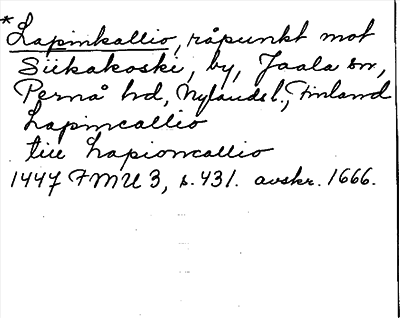 *Lapinkallio, råpunkt mot
Siikakoski, by, Jaala sn,
Pernå hd, Nylands l., Finland
Lapincallio
till Lapioncallio
1447 FMU 3, s. 431. avskr. 1666.